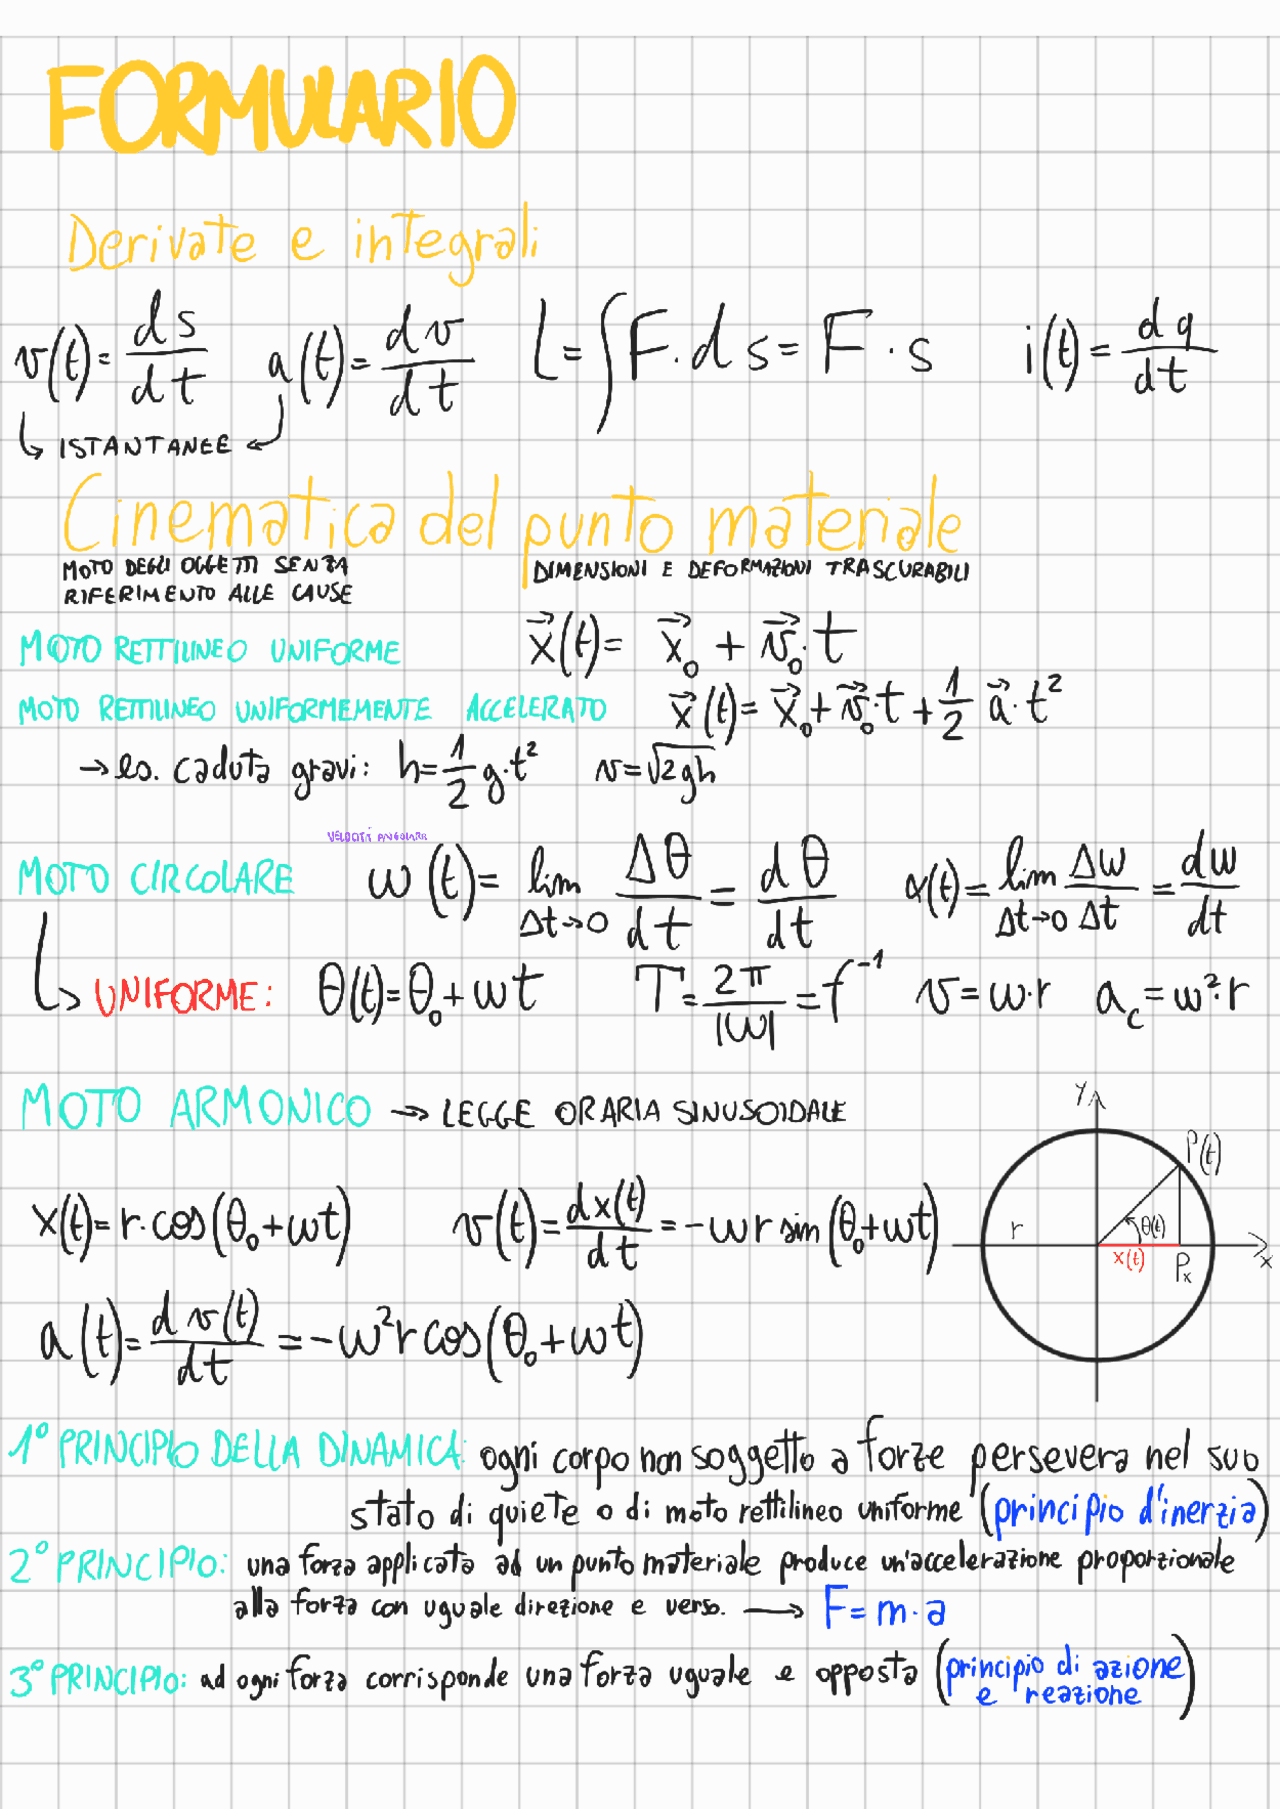 FORMULARIO
Derivate e integrali
v(t)= ds/dt a(t)= dv/dt L=∫F·ds=F·s i(t)= dq/dt
↳ ISTANTANEE ↲
Cinematica del punto materiale
MOTO DEGLI OGGETTI SENZA DIMENSIONI E DEFORMAZIONI TRASCURABILI
RIFERIMENTO ALLE CAUSE
MOTO RETTILINEO UNIFORME x⃗(t)= x⃗₀ + v⃗₀·t
MOTO RETTILINEO UNIFORMEMENTE ACCELERATO x⃗(t)= x⃗₀+v⃗₀·t+1/2 a⃗·t²
→ es. caduta gravi: h=1/2 g·t² v=√2gh
VELOCITÀ ANGOLARE
MOTO CIRCOLARE ω(t)= lim Δt→0 Δθ/dt = dθ/dt α(t)= lim Δt→0 Δω/Δt = dω/dt
↳ UNIFORME: θ(t)=θ₀+ωt T=2π/|ω|=f⁻¹ v=ω·r a_c=ω²·r
MOTO ARMONICO → LEGGE ORARIA SINUSOIDALE
x(t)=r·cos(θ₀+ωt) v(t)=dx(t)/dt=-ωr sin(θ₀+ωt)
a(t)=dv(t)/dt=-ω²r cos(θ₀+ωt)
y
P(t)
r θ(t)
x(t) Pₓ x
1° PRINCIPIO DELLA DINAMICA: ogni corpo non soggetto a forze persevera nel suo
stato di quiete o di moto rettilineo uniforme (principio d'inerzia)
2° PRINCIPIO: una forza applicata ad un punto materiale produce un'accelerazione proporzionale
alla forza con uguale direzione e verso. → F=m·a
3° PRINCIPIO: ad ogni forza corrisponde una forza uguale e opposta (principio di azione
e reazione)